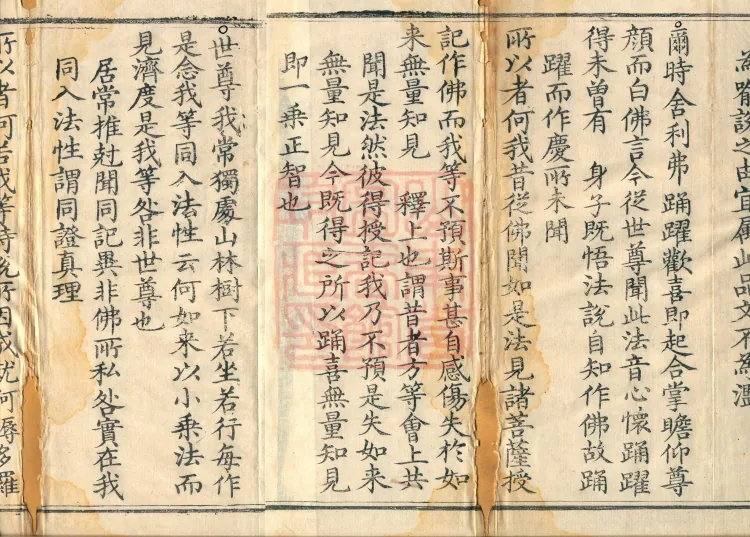 說之由宜屬此品文不
爾時舍利弗踊躍歡喜即起合掌瞻仰尊
顔而白佛言今從世尊聞此法音心懷踊躍
得未曾有　身子既悟法說自知作佛故踊
躍而作慶所未聞
所以者何我昔從佛聞如是法見諸菩薩授
記作佛而我等不預斯事甚自感傷失於如
来無量知見　釋上也謂昔者方等會上共
聞是法然彼得授記我乃不預是失如来
無量知見今既得之所以踊喜無量知見
即一乗正智也
世尊我常獨處山林樹下若坐若行每作
是念我等同入法性云何如来以小乗法而
見濟度是我等咎非世尊也
居常推尅聞同記異非佛所私咎實在我
同入法性謂同證真理
所以者何若我等待說所因成就阿耨多羅